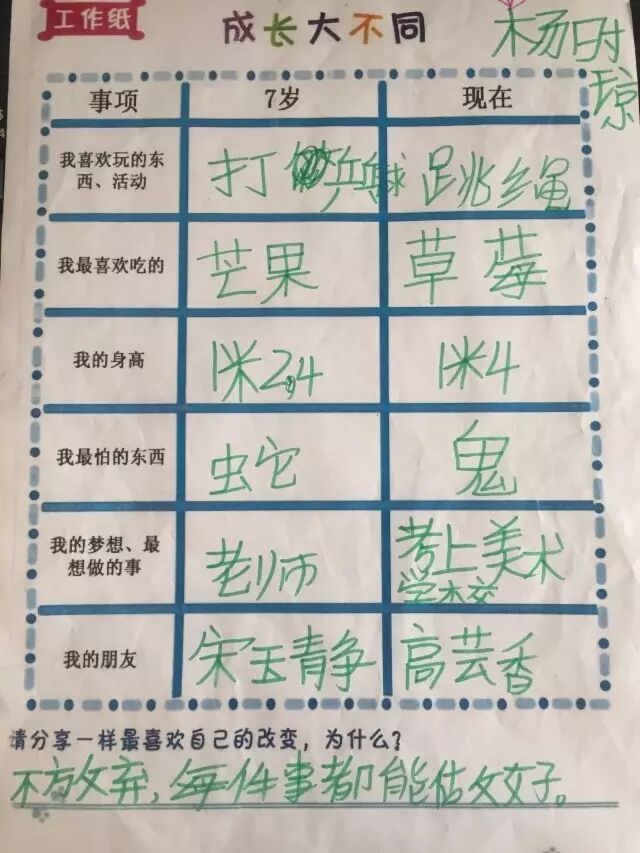 工作纸
成长大不同
杨时琼
事项 7岁 现在
我喜欢玩的东西、活动 打乒乓球 跳绳
我最喜欢吃的 芒果 草莓
我的身高 1米2.4 1米4
我最怕的东西 蛇 鬼
我的梦想、最想做的事 老师 考上美术学校
我的朋友 宋玉青争 高芸香
请分享一样最喜欢自己的改变，为什么？
不放弃，每件事都能估文好。